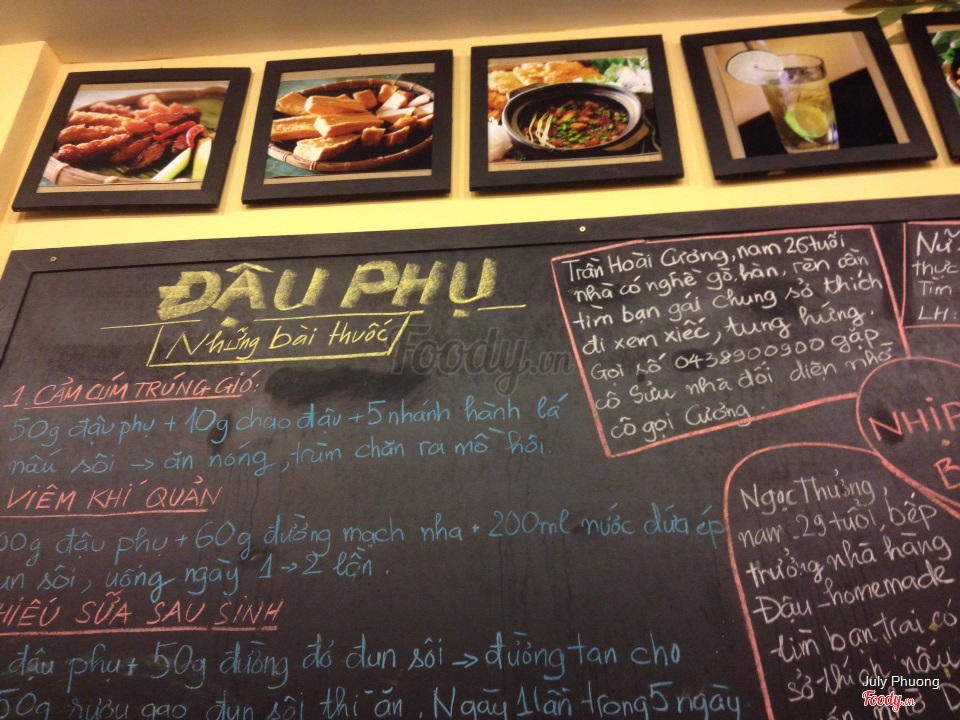 ĐẬU PHỤ
Những bài thuốc
1. CẢM CÚM TRÚNG GIÓ:
50g đậu phụ + 10g chao đậu + 5 nhánh hành lá
nấu sôi → ăn nóng, trùm chăn ra mồ hôi.
VIÊM KHÍ QUẢN
00g đậu phụ + 60g đường mạch nha + 200ml nước dứa ép
un sôi, uống ngày 1→2 lần.
HIẾU SỮA SAU SINH
đậu phụ + 50g đường đỏ đun sôi → đường tan cho
50g rượu gạo đun sôi thì ăn. Ngày 1 lần trong 5 ngày
Trần Hoài Cương, nam 26 tuổi
nhà có nghề gò hàn, rèn cần
tìm bạn gái chung sở thích
đi xem xiếc, tung hứng.
Gọi số 0438900900 gặp
cô Sửu nhà đối diện nhờ
cô gọi Cương.
NỮ
thực
Tìm
LH:
NHỊP
B
Ngọc Thưởng,
nam 29 tuổi, bếp
trưởng nhà hàng
Đậu-homemade
tìm bạn trai có
sở thích nấu
ăn mở D
Foody.vn
July Phuong
Foody.vn